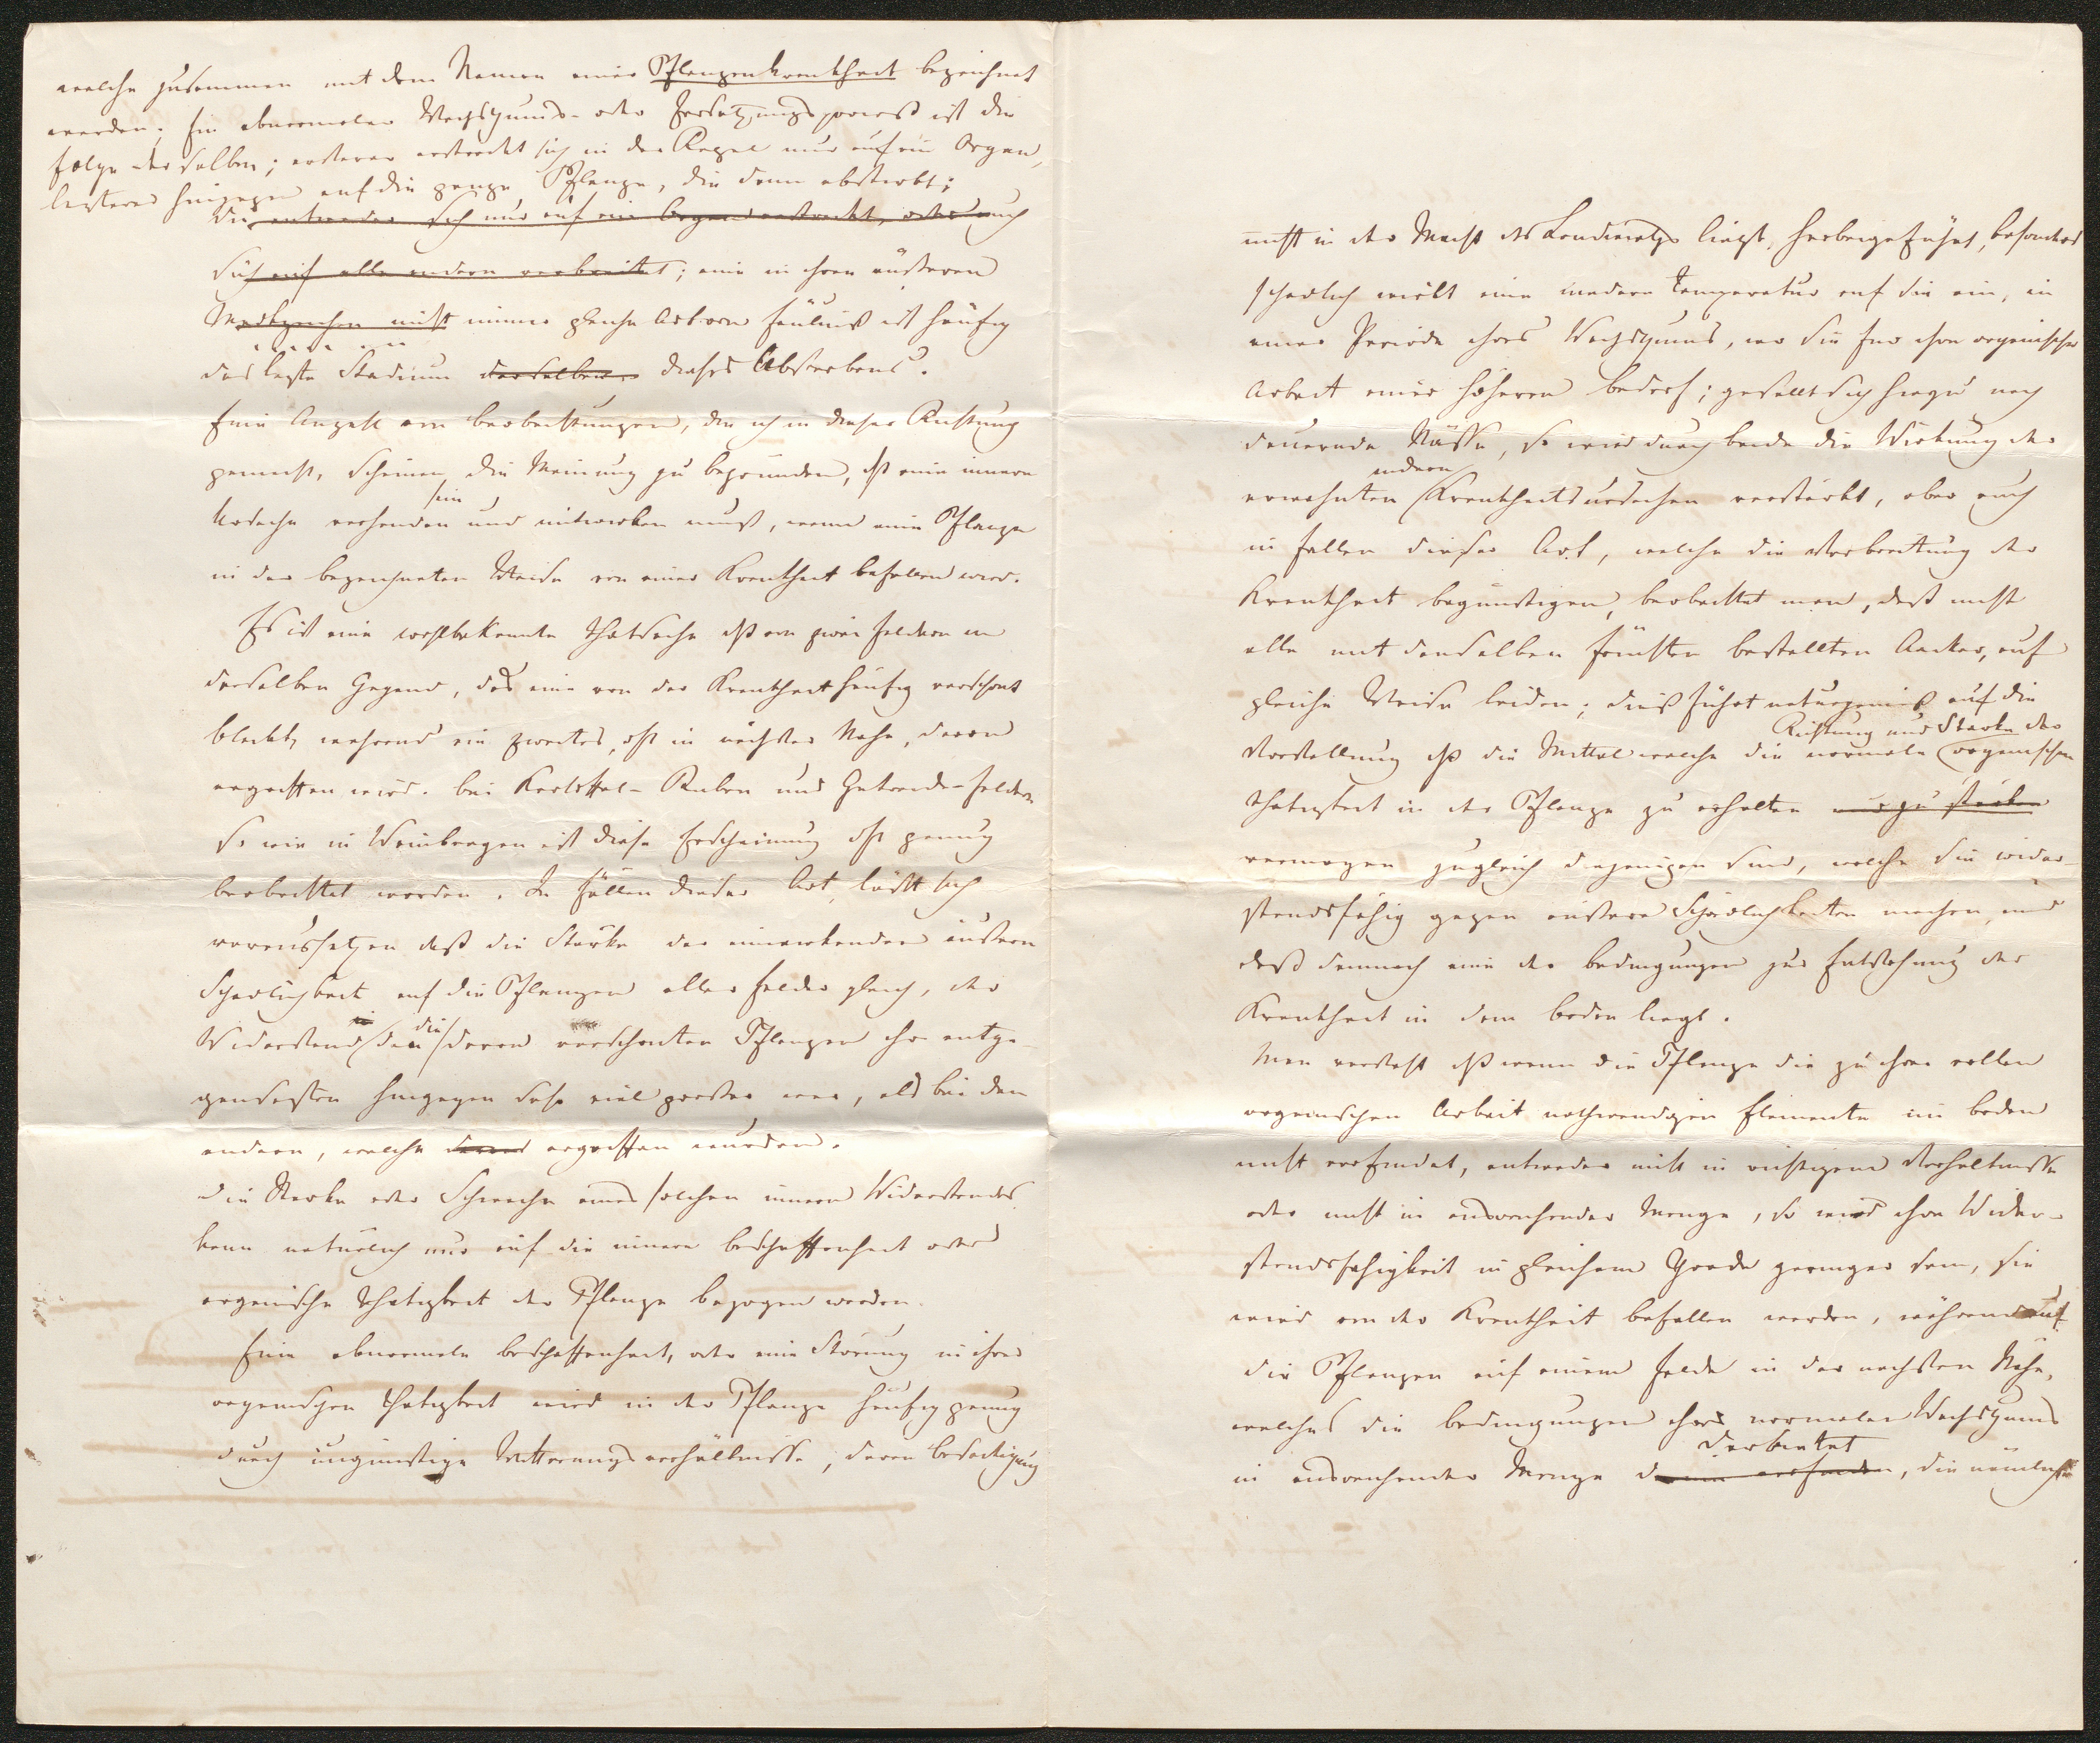 welche zusammen mit dem Namen einer Pflanzenkrankheit bezeichnet
werden; Ein abnormaler Wachsthums- oder Zersetzungsprocess ist die
Folge derselben; ersterer erstreckt sich in der Regel nur auf ein Organ,
lezterer hingegen auf die ganze Pflanze, die dann abstirbt;
die entweder sich nur auf ein Organ erstreckt, oder auch
sich auf alle andern verbreitet; eine in ihren äußeren
Merkzeichen nicht immer gleiche Art von Fäulniß ist häufig
das lezte Stadium derselben dieses Absterbens.
Eine Anzahl von Beobachtungen, die ich in dieser Richtung
gemacht, scheinen die Meinung zu begründen, dß eine innere
Ursache vorhanden sein und mitwirken muß, wenn eine Pflanze
in der bezeichneten Weise von einer Krankheit befallen wird.
Es ist eine wohlbekannte Thatsache dß von zwei Feldern in
derselben Gegend, das eine von der Krankheit häufig verschont
bleibt, während ein zweites, oft in nächster Nähe, davon
ergriffen wird. Bei Kartoffel- Rüben und Getreide-Feldern
so wie in Weinbergen ist diese Erscheinung oft genug
beobachtet worden. In Fällen dieser Art läßt sich
voraussetzen daß die Stärke der einwirkenden äußern
Schädlichkeit auf die Pflanzen aller Felder gleich, der
Widerstand den die davon verschonten Pflanzen ihr entge-
gensetzten hingegen sehr viel grösser war, als bei den
andern, welche davon ergriffen wurden.
Die Stärke oder Schwäche eines solchen innern Widerstandes
kann natürlich nur auf die innere Beschaffenheit oder
organische Thätigkeit der Pflanze bezogen werden.
Eine abnormale Beschaffenheit, oder eine Störung in ihrer
organischen Thätigkeit wird in der Pflanze häufig genug
durch ungünstige Witterungsverhältnisse, deren Beseitigung
nicht in der Macht des Landwirths liegt, herbeigeführt, besonders
schädlich wirkt eine niedere Temperatur auf sie ein, in
einer Periode ihres Wachsthums, wo sie für ihre organische
Arbeit einer höheren bedarf; gesellt sich hiezu noch
dauernde Nässe, so wird durch beide die Wirkung der
erwähnten andern Krankheitsursachen verstärkt, aber auch
in Fällen dieser Art, welche die Verbreitung der
Krankheit begünstigen, beobachtet man, daß nicht
alle mit denselben Früchten bestellten Aecker, auf
gleiche Weise leiden; dieß führt naturgemäß auf die
Vorstellung dß die Mittel welche die normale Richtung und Stärke der organischen
Thätigkeit in der Pflanze zu erhalten und zu stärken
vermögen zugleich diejenigen sind, welche sie wider-
standsfähig gegen äußere Schädlichkeiten machen, und
daß demnach eine der Bedingungen zur Entstehung der
Krankheit in dem Boden liegt.
Man versteht dß wenn die Pflanze die zu ihrer vollen
organischen Arbeit nothwendigen Elemente im Boden
nicht vorfindet, entweder nicht in richtigem Verhältnisse
oder nicht in ausreichender Menge, so wird ihre Wider-
standsfähigkeit in gleichem Grade geringer sein, sie
wird von der Krankheit befallen werden, während
die Pflanzen auf einem Felde in der nächsten Nähe,
welches die Bedingungen ihres normalen Wachsthums
in ausreichender Menge darbietet, die nämliche